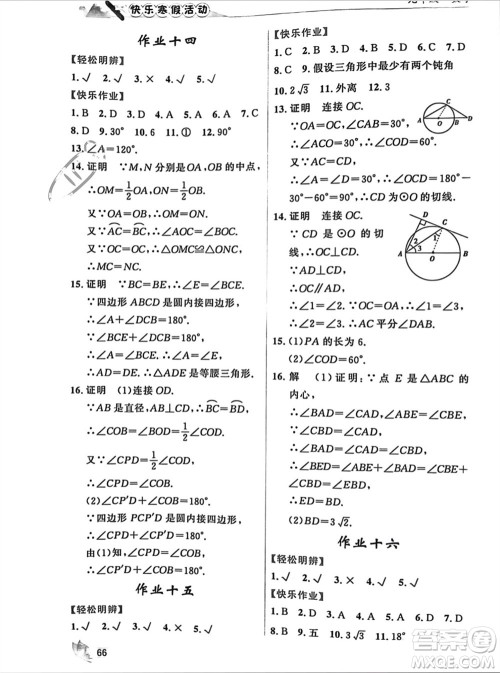 快乐寒假活动
作业十四
【轻松明辨】
1.√ 2.√ 3.× 4.√ 5.√
【快乐作业】
1.B 2.B 3.D 4.D 5.A 6.B 7.A
8.D 9.30° 10.6 11.① 12.90°
13.∠A=120°.
14.证明 ∵M,N分别是OA,OB的中点,
∴OM=1/2OA,ON=1/2OB.
又∵OA=OB,∴OM=ON.
又∵AC=BC,∴∠AOC=∠BOC,
又∵OC=OC,∴△OMC≌△ONC.
∴MC=NC.
15.证明 ∵BC=BE,∴∠E=∠BCE.
∵四边形ABCD是圆内接四边形,
∴∠A+∠DCB=180°.
∵∠BCE+∠DCB=180°,
∴∠A=∠BCE.∴∠A=∠E.
∴AD=DE.∴△ADE是等腰三角形.
16.证明 (1)连接OD.
∵AB是直径,AB⊥CD,∴BC=BD.
∴∠COB=∠DOB=1/2∠COD.
又∵∠CPD=1/2∠COD,
∴∠CPD=∠COB.
(2)∠CP'D+∠COB=180°.
∵四边形PCP'D内接于圆,
∴∠CPD+∠CP'D=180°.
由(1)知,∠CPD=∠COB,
∴∠CP'D+∠COB=180°.
作业十五
【轻松明辨】
1.√ 2.√ 3.× 4.√ 5.√
66
【快乐作业】
1.C 2.A 3.B 4.D 5.B 6.B 7.D
8.C 9.假设三角形中最少有两个钝角
10.2√3 11.外离 12.3
13.证明 连接OC.
∵OA=OC,∠CAO=30°,
∴∠ACO=∠CAO=30°.
∴∠COD=60°.
∴∠OCD=180°-
30°-60°=90°.∴CD是⊙O的切线.
14.证明 连接OC.
∵CD是⊙O的切线,
∴OC⊥CD.
又∵AD⊥CD,
∴OC∥AD.
∴∠1=∠2.
∵OC=OA,∴∠1=∠3.
∴∠2=∠3.∴AC平分∠DAB.
15.(1)PA的长为6.
(2)∠COD=60°.
16.解 (1)证明:∵点E是△ABC的
内心,
∴∠BAD=∠CAD,∠EBA=∠EBC.
∵∠CAD=∠CBD,
∴∠CBD=∠BAD.
∴∠BED=∠EBA+∠BAD,
∠EBD=∠EBC+∠CBD,
∴∠BED=∠EBD.∴DB=DE.
(2)DB=3√2.
作业十六
【轻松明辨】
1.√ 2.√ 3.√ 4.× 5.√
【快乐作业】
1.B 2.D 3.C 4.B 5.C 6.A 7.A
8.D 9.五 10.3√3 11.18° 12.√3